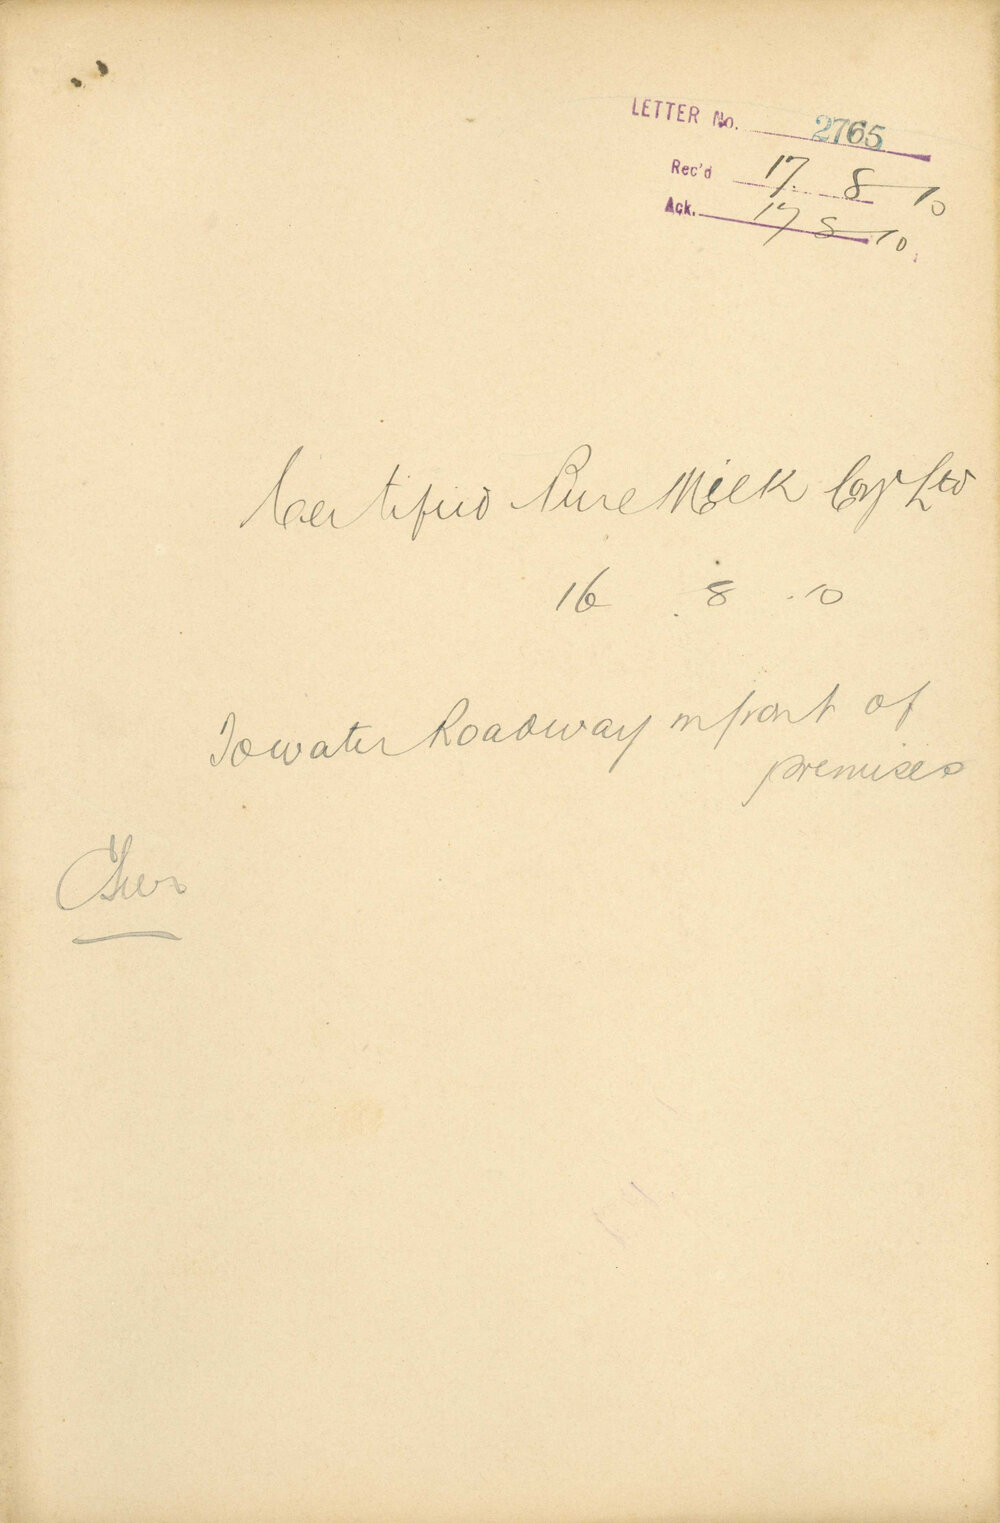 LETTER No. 2765
Rec'd 17. 8 10
Ack. 17 8 10
Certified Pure Milk Coy Ltd
16 8 10
To water Roadway in front of
premises